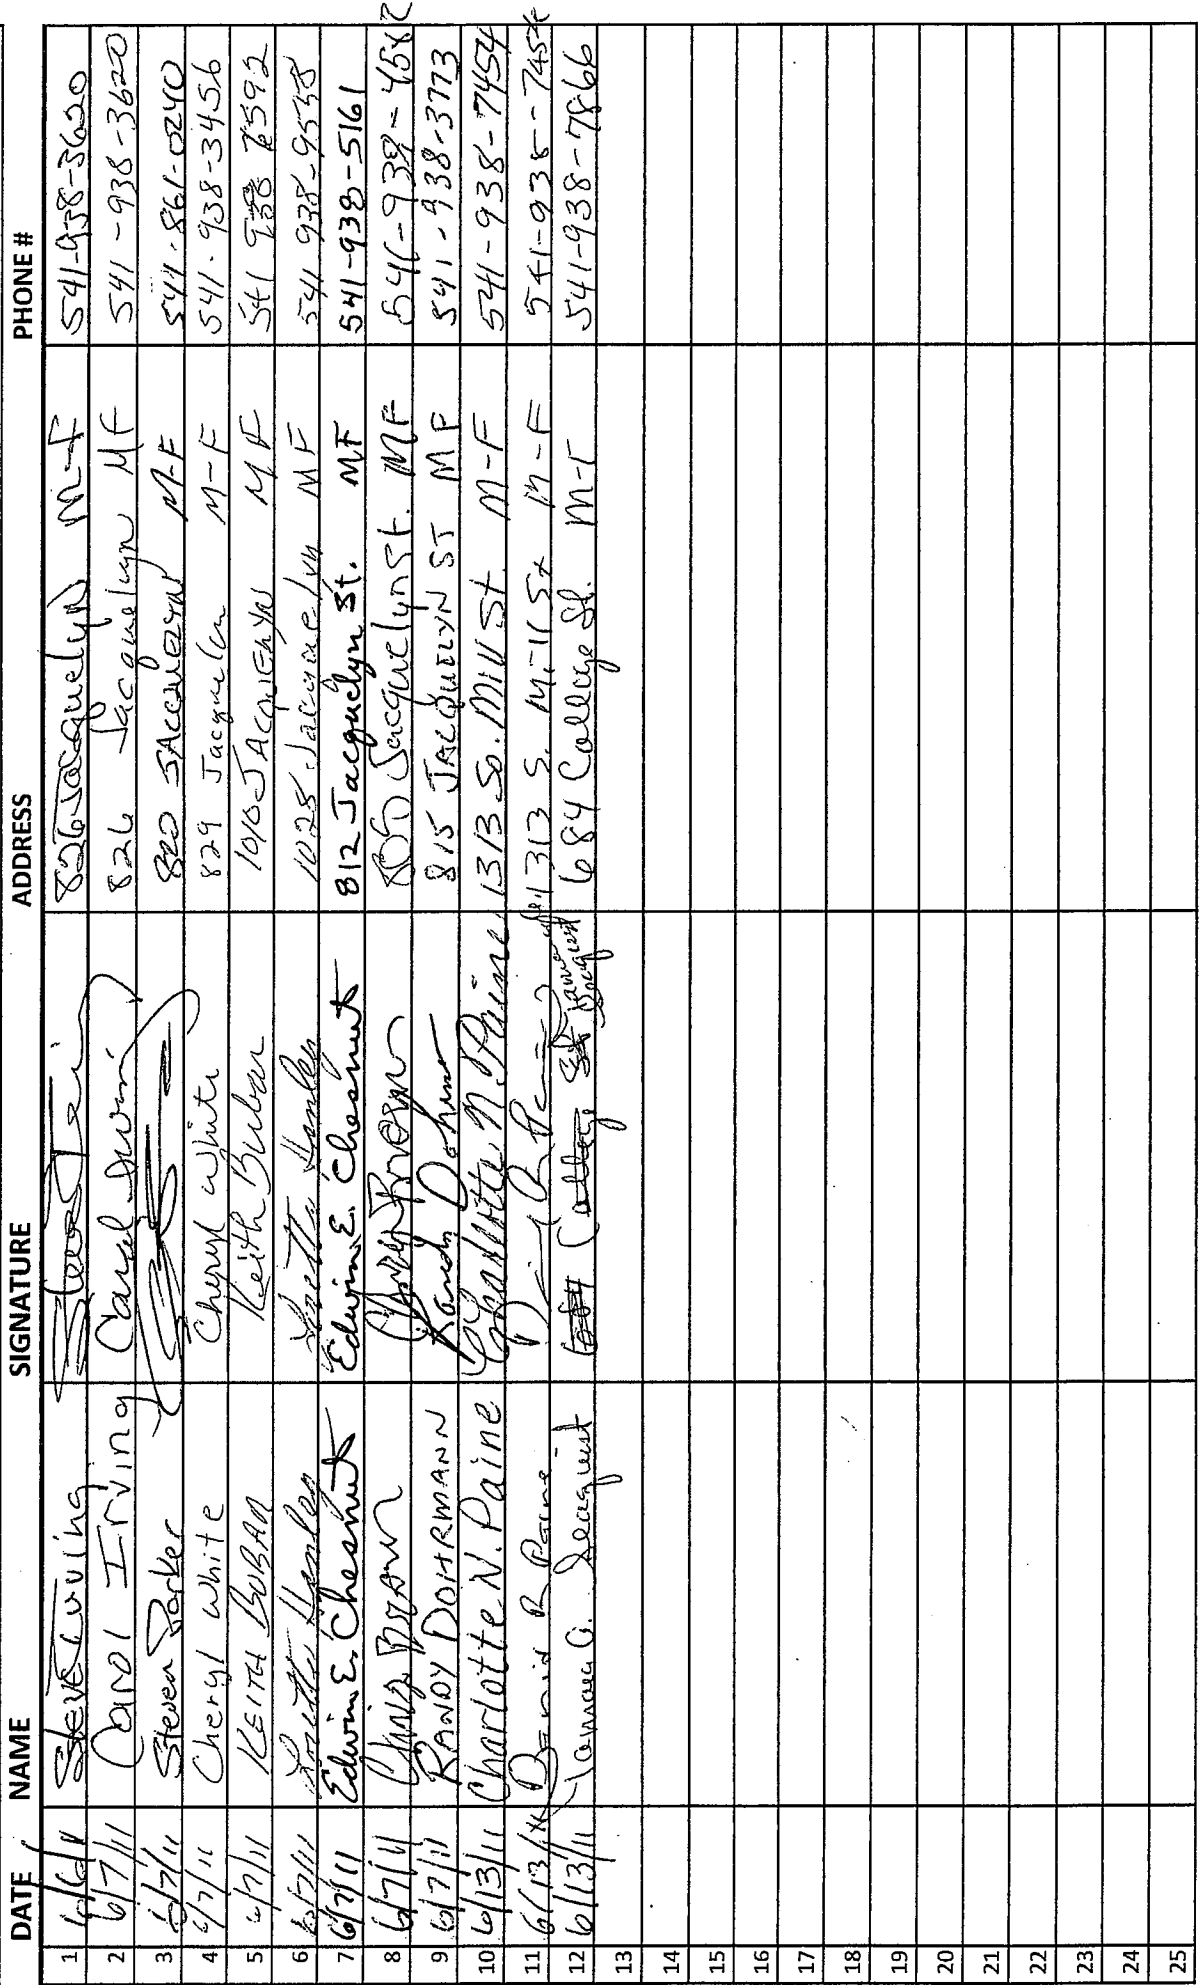 DATE NAME SIGNATURE ADDRESS PHONE #
1 6/6/11 Steve Irving 826 Jacquelyn M-F 541-938-3620
2 6/7/11 Carol Irving Carol Irving 826 Jacquelyn MF 541-938-3620
3 6/7/11 Steven Parker 820 M-F 541-861-0240
4 6/7/11 Cheryl White Cheryl White 829 Jacquelyn M-F 541-938-3456
5 6/7/11 KEITH BURAN Keith Buran 1010 MF 541
6 6/7/11 1028 Jacquelyn MF 541
7 6/7/11 Edwin E. Chesnut Edwin E. Chesnut 812 Jacquelyn St. MF 541-938-5161
8 6/7/11 Brown Brown Jacquelyn St. MF 541-938-4582
9 6/7/11 RANDY DOHRMANN 815 ST MF 541-938-3773
10 6/13/11 Charlotte N. Paine Charlotte N. Paine 1313 So. Mill St. M-F 541-938-7454
11 6/13/11 David R Paine 1313 S. Mill St M-F 541-938-7454
12 6/13/11 Seaquist 684 College St. M-F 541-938-7866
13
14
15
16
17
18
19
20
21
22
23
24
25